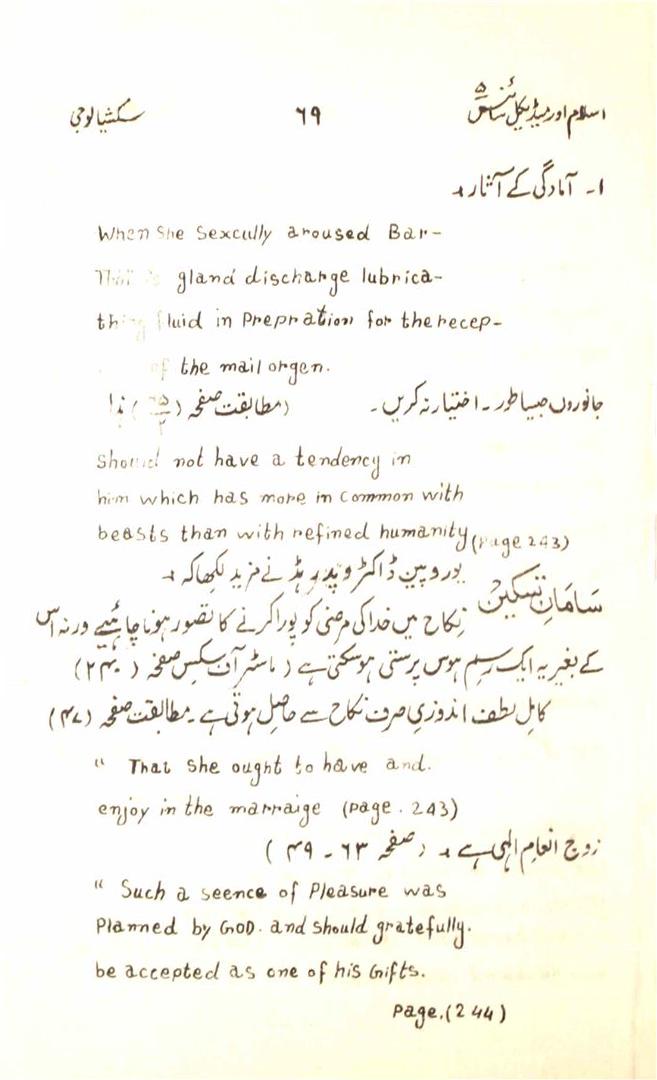 اسلام اور میڈیکل سائنس ۵ ٦٩ سکشیالوجی
۱۔ آمادگی کے آثار
When She Sexcully aroused Bar-
gland discharge lubrica-
fluid in Prepration for the recep-
of the mail orgen.
جانوروں جیسا طور۔ اختیار نہ کریں۔ (مطابقت صفحہ
Should not have a tendency in
him which has more in Common with
beasts than with refined humanity (Page 243)
یوروپین ڈاکٹر نے مزید لکھا کہ
سَامَانِ تسکین نِکاح میں خدا کی مرضی کو پورا کرنے کا تصور ہونا چاہئیے ورنہ اس
کے بغیر یہ ایک رسم ہوس پرستی ہو سکتی ہے ( ماسٹر آن سکس صفحہ ( ۲۴۰ )
کامِل لطف اندوزی صرف نکاح سے حاصِل ہوتی ہے۔ مطابقت صفحہ (۴۷)
“ That She ought to have and.
enjoy in the marraige (page. 243)
زوج انعام الہی ہے ( صفحہ ۶۳ ۔ ۴۹ )
“ Such a seence of Pleasure was
Planned by GOD. and should gratefully.
be accepted as one of his Gifts.
Page.(244)